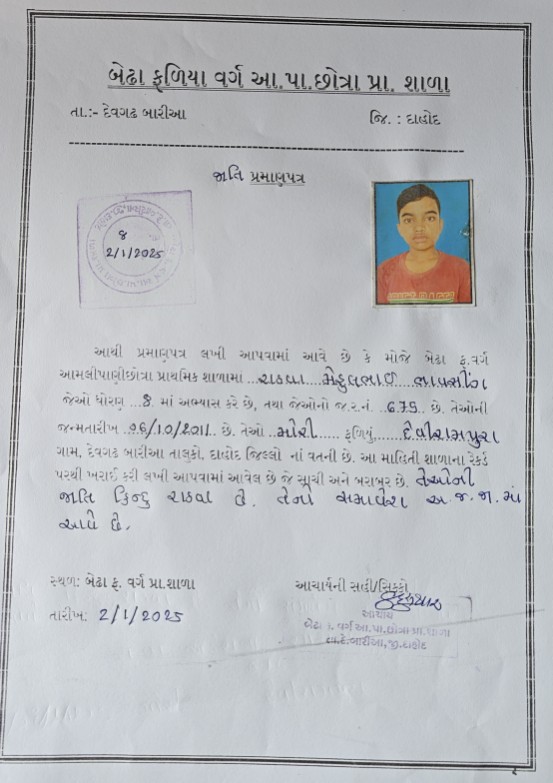 બેઢા ફળિયા વર્ગ આ.પા.છોત્રા પ્રા. શાળા
તા.:- દેવગઢ બારીઆ જિ. : દાહોદ
જાતિ પ્રમાણપત્ર
8
2/1/2025
આથી પ્રમાણપત્ર લખી આપવામાં આવે છે કે મોજે બેઢા ફ.વર્ગ
આમલીપાણીછોત્રા પ્રાથમિક શાળામાં ...રાઠવા...મેહુલભાઈ
જેઓ ધોરણ ...8. માં અભ્યાસ કરે છે, તથા જેઓનો જ.ર.નં. 675.. છે. તેઓની
જન્મતારીખ ..06/10/2011.. છે. તેઓ ..મોરી..... ફળિયું,....દેવીરામપુરા
ગામ, દેવગઢ બારીઆ તાલુકો, દાહોદ જિલ્લો નાં વતની છે. આ માહિતી શાળાના રેકર્ડ
પરથી ખરાઈ કરી લખી આપવામાં આવેલ છે જે સાચી અને બરાબર છે. તેઓની
જાતિ હિન્દુ રાઠવા છે. તેનો સમાવેશ અ.જ.જા.માં
આવે છે.
સ્થળ: બેઢા ફ. વર્ગ પ્રા.શાળા આચાર્યની સહી/સિક્કો
તારીખ: 2/1/2025
આચાર્ય
બેઢા ફ. વર્ગ આ.પા.છોત્રા પ્રા.શાળા
તા.દે.બારીઆ,જી.દાહોદ